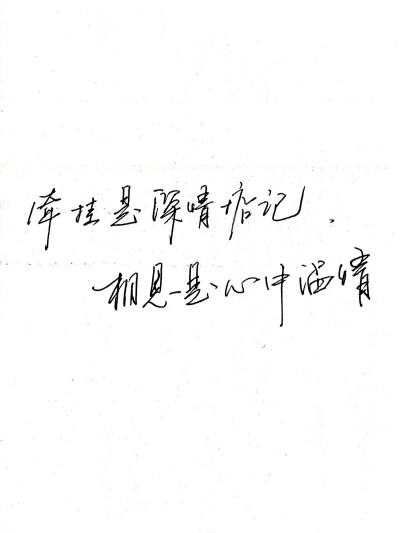 牵挂是深情惦记.
相见是心中温情